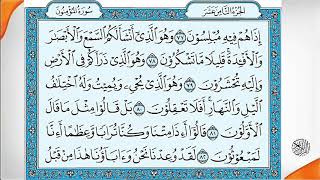 سُورَةُ المُؤْمِنُون
الجُزْءُ الثَّامِنَ عَشَرَ
إِذَا هُمْ فِيهِ مُبْلِسُونَ ٧٧ وَهُوَ الَّذِي أَنشَأَ لَكُمُ السَّمْعَ وَالْأَبْصَارَ
وَالْأَفْئِدَةَ قَلِيلًا مَّا تَشْكُرُونَ ٧٨ وَهُوَ الَّذِي ذَرَأَكُمْ فِي الْأَرْضِ
وَإِلَيْهِ تُحْشَرُونَ ٧٩ وَهُوَ الَّذِي يُحْيِي وَيُمِيتُ وَلَهُ اخْتِلَافُ
الَّيْلِ وَالنَّهَارِ أَفَلَا تَعْقِلُونَ ٨٠ بَلْ قَالُوا مِثْلَ مَا قَالَ
الْأَوَّلُونَ ٨١ قَالُوا أَءِذَا مِتْنَا وَكُنَّا تُرَابًا وَعِظَامًا أَءِنَّا
لَمَبْعُوثُونَ ٨٢ لَقَدْ وُعِدْنَا نَحْنُ وَءَابَاؤُنَا هَٰذَا مِن قَبْلُ